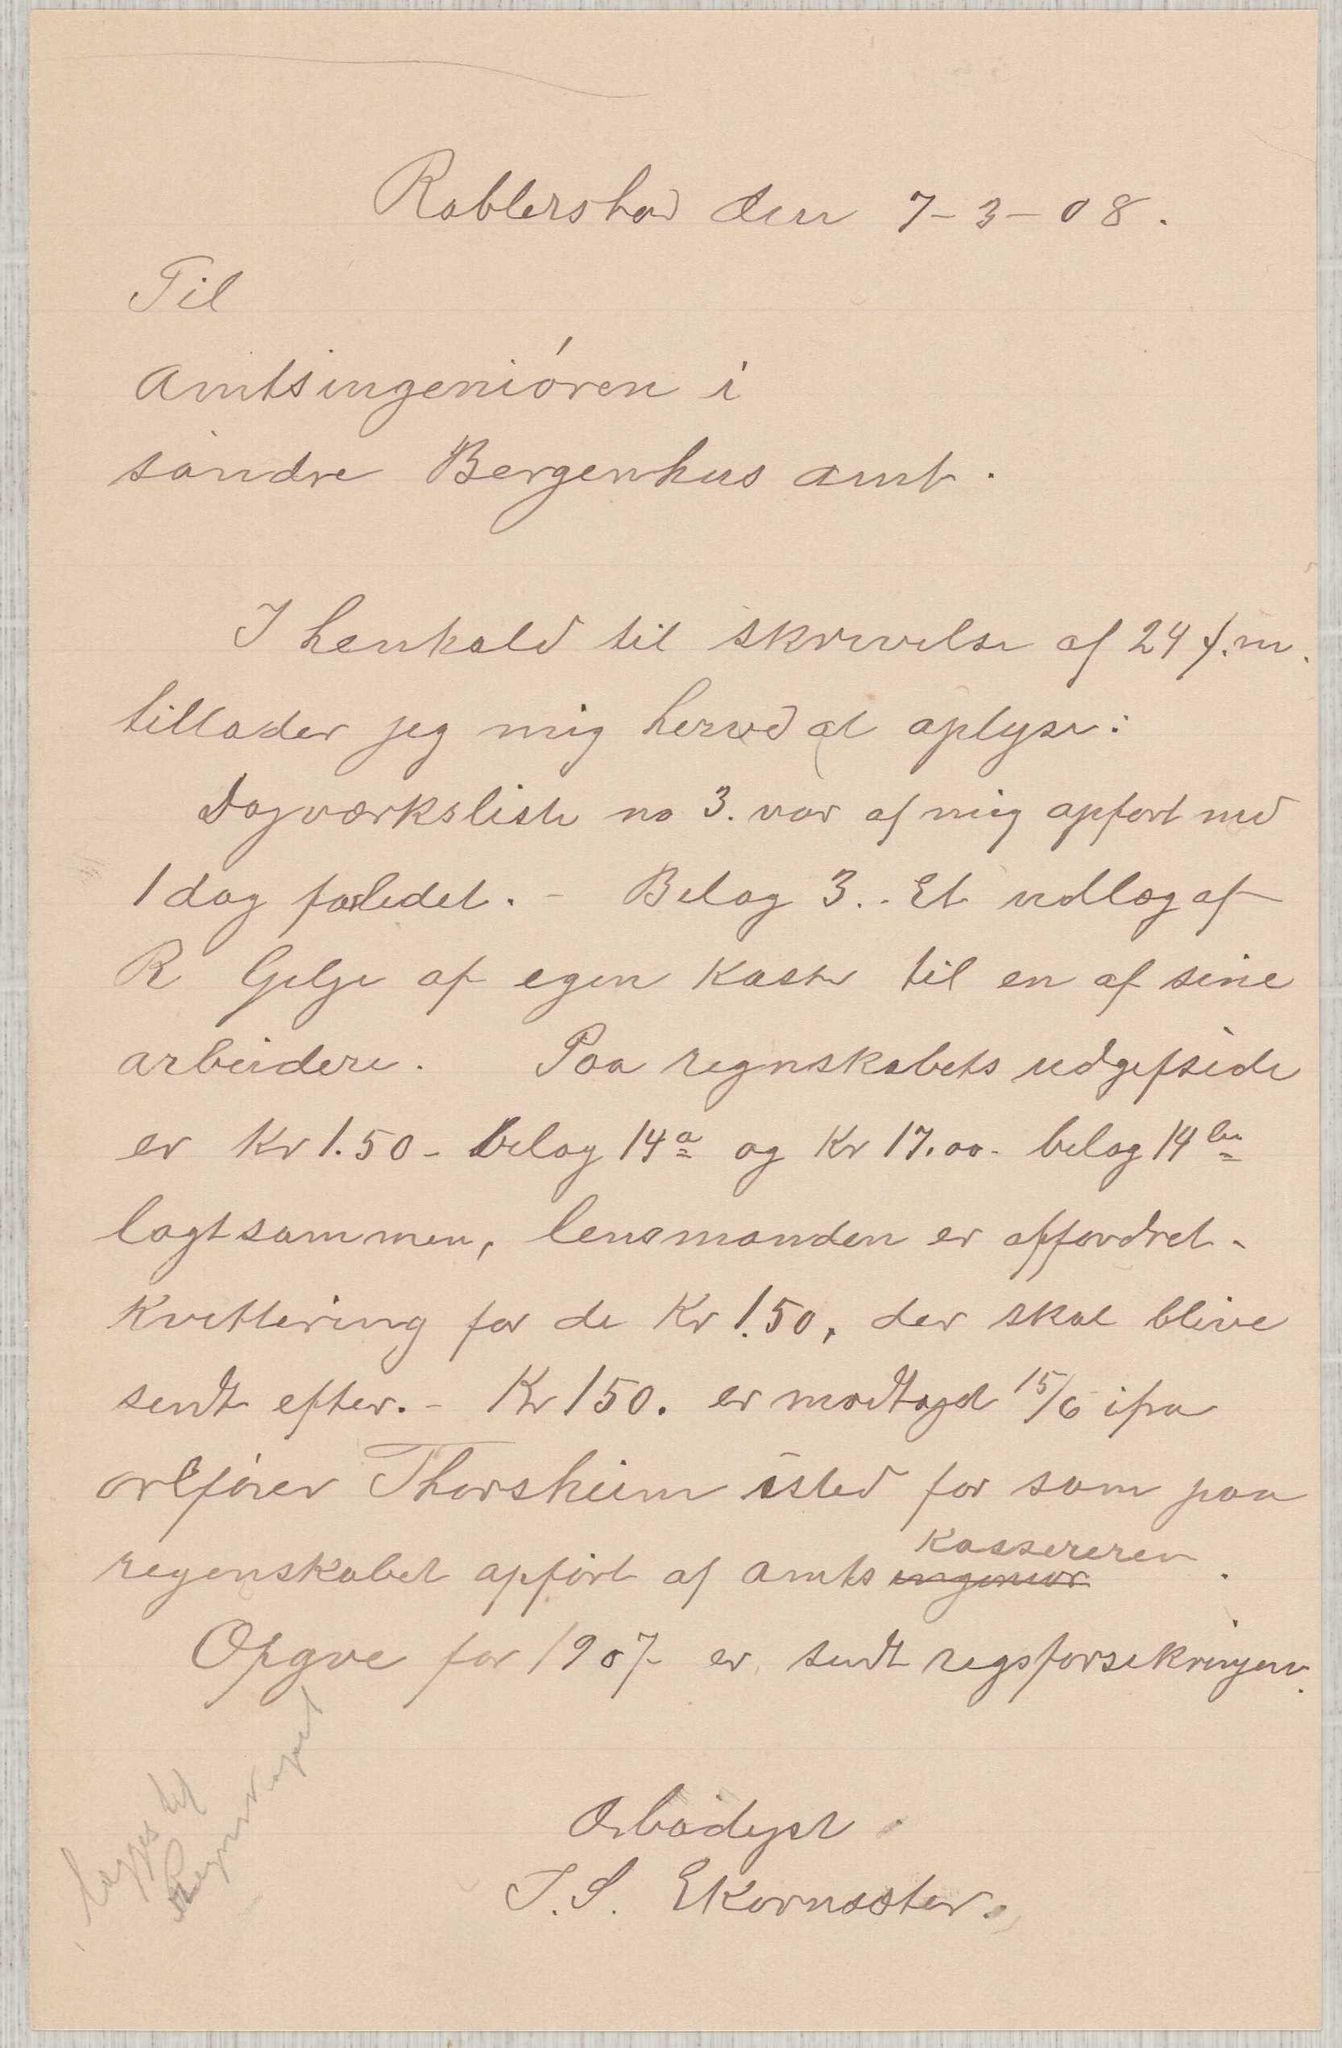 Rablershav den 7-3-08.
Til
Amtsingeniören i
söndre Bergenhus amt.
I henhold til skrivelse af 24 f.m.
tillader jeg mig herved at oplyse:
Dagværksliste no 3. var af mig opfört med
1 dag forledet. - Belag 3.. Et udlæg af
R Gelge af egen kasse til en af sine
arbeidere. Paa regnskabets udgifside
er Kr 1.50 - belag 14a og Kr 17.00 - belag 14b
lagt sammen, lensmanden er affordret
kvittering for de Kr 1.50, der skal blive
sendt efter. - Kr 150. er modtaged 15/6 ifra
ordförer Thorsheim isted for som paa
regenskabet opfört af amts ingeniör kassereren.
Opgve for 1907 er sendt regsforsekringen.
Ærbödigst
J. S. Ekornsæter.
Lægges til
Regnskapet